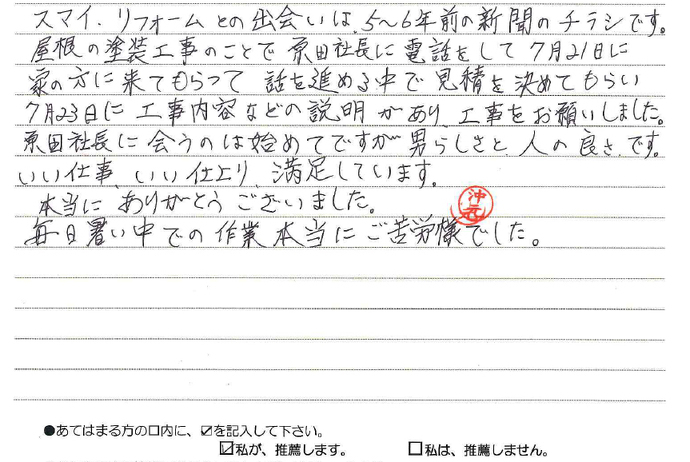 スマイ.リフォームとの出会いは、5〜6年前の新聞のチラシです。
屋根の塗装工事のことで原田社長に電話をして7月21日に
家の方に来てもらって話を進める中で見積を決めてもらい
7月23日に工事内容などの説明があり、工事をお願いしました。
原田社長に会うのは始めてですが男らしさと、人の良さ、です。
いい仕事、いい仕上り、満足しています。
本当にありがとうございました。
毎日暑い中での作業本当にご苦労様でした。
沖
●あてはまる方の口内に、☑を記入して下さい。
☑私が、推薦します。 □私は、推薦しません。